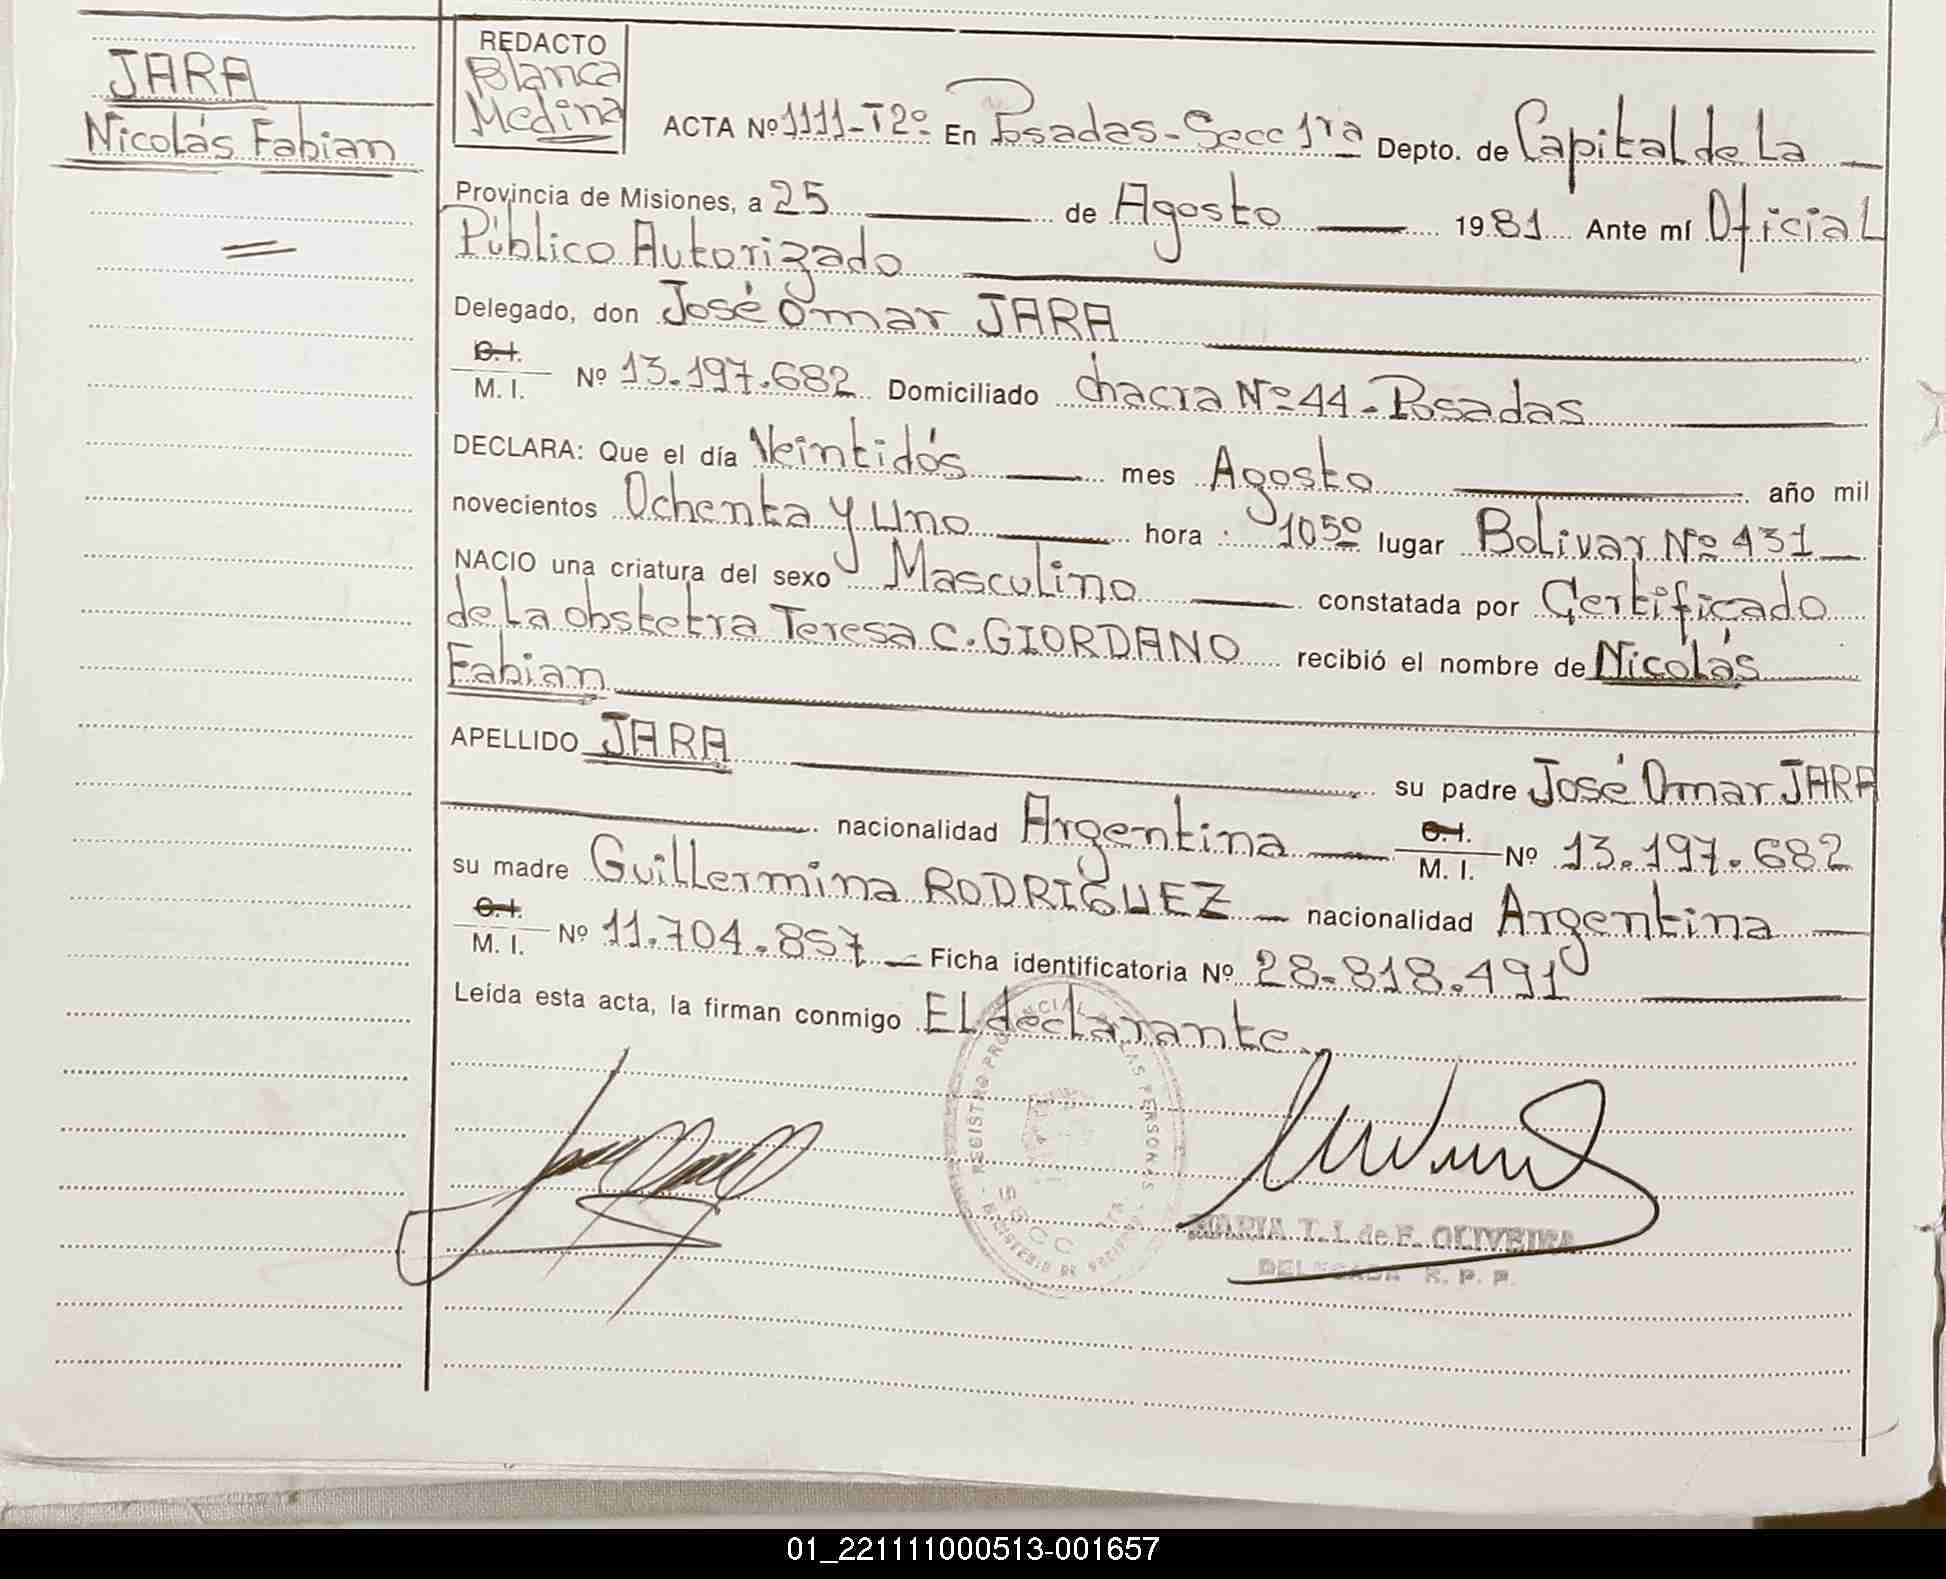 JARA
Nicolás Fabian
REDACTO
Blanca
Medina
ACTA Nº 1111-T2º En Posadas-Secc 1ra Depto. de Capital de La
Provincia de Misiones, a 25 de Agosto 1981 Ante mí Oficial
Público Autorizado
Delegado, don José Omar JARA
C.I.
M. I. Nº 13.197.682 Domiciliado chacra Nº 44-Posadas
DECLARA: Que el día Veintidós mes Agosto año mil
novecientos Ochenta y Uno hora 1050 lugar Bolivar Nº 431
NACIO una criatura del sexo Masculino constatada por Certificado
de La obstetra Teresa C. GIORDANO recibió el nombre de Nicolás
Fabian
APELLIDO JARA su padre José Omar JARA
nacionalidad Argentina C.I. M. I. Nº 13.197.682
su madre Guillermina RODRIGUEZ nacionalidad Argentina
C.I.
M. I. Nº 11.704.857 Ficha identificatoria Nº 28.818.491
Leída esta acta, la firman conmigo El declarante.
REGISTRO PROVINCIAL LAS PERSONAS
SECC 1ª
MINISTERIO DE
MARIA T. I. de F. OLIVEIRA
DELEGADA R. P. P.
01_221111000513-001657